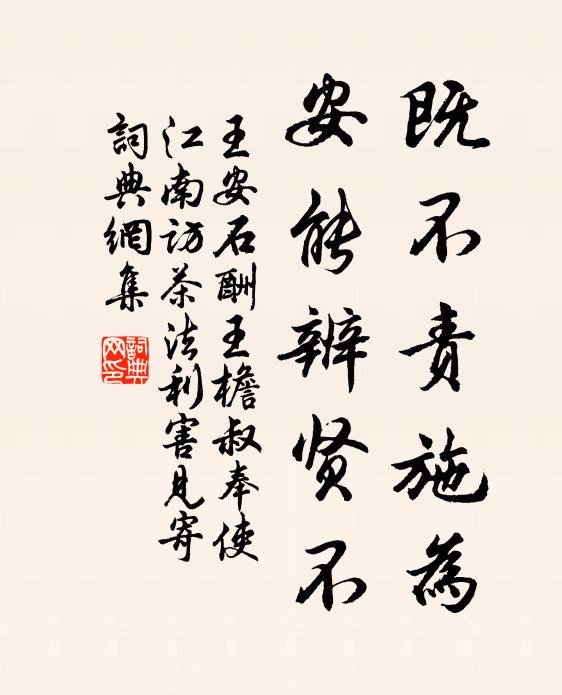 既不责施為
安能辨贤不
王安石酬王檐叔奉使
江南访茶法利害見寄
詞典網集
詞典网印